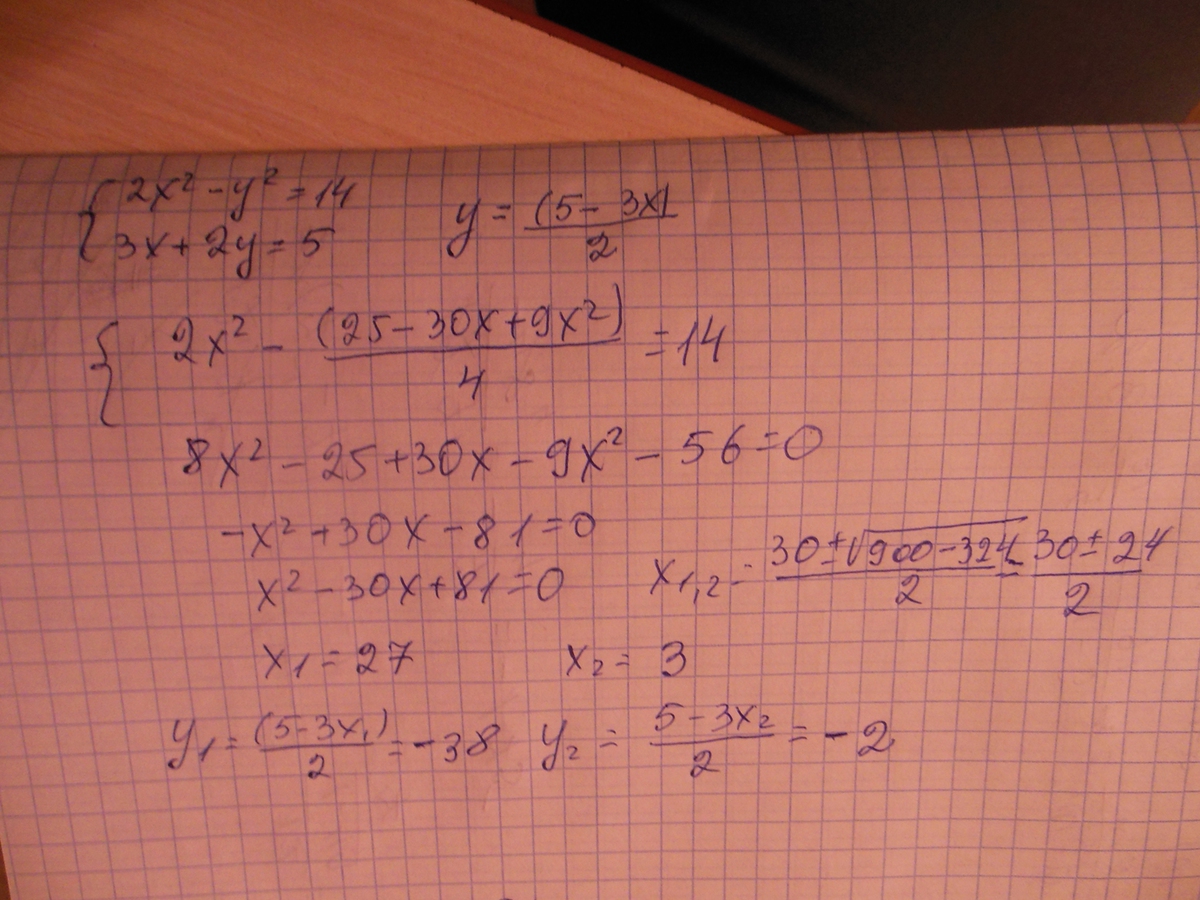 { 2x² - y² = 14
3x + 2y = 5
y = (5 - 3x) / 2
{ 2x² - (25 - 30x + 9x²) / 4 = 14
8x² - 25 + 30x - 9x² - 56 = 0
-x² + 30x - 81 = 0
x² - 30x + 81 = 0
x₁,₂ = (30 ± √(900 - 324)) / 2 = (30 ± 24) / 2
x₁ = 27 x₂ = 3
y₁ = (5 - 3x₁) / 2 = -38 y₂ = (5 - 3x₂) / 2 = -2